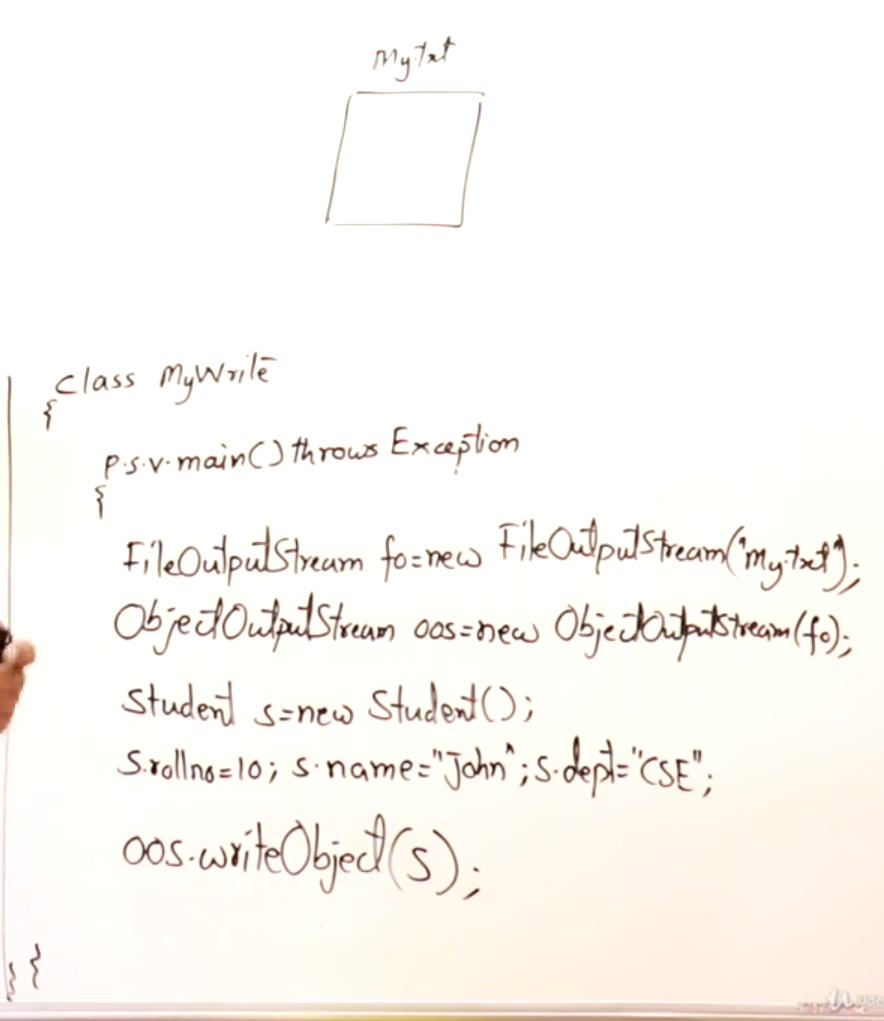 My.txt
class MyWrite
{
p.s.v.main() throws Exception
{
FileOutputStream fo=new FileOutputStream("my.txt");
ObjectOutputStream oos=new ObjectOutputStream(fo);
Student s=new Student();
S.rollno=10; s.name="John"; S.dept="CSE";
oos.writeObject(s);
} }